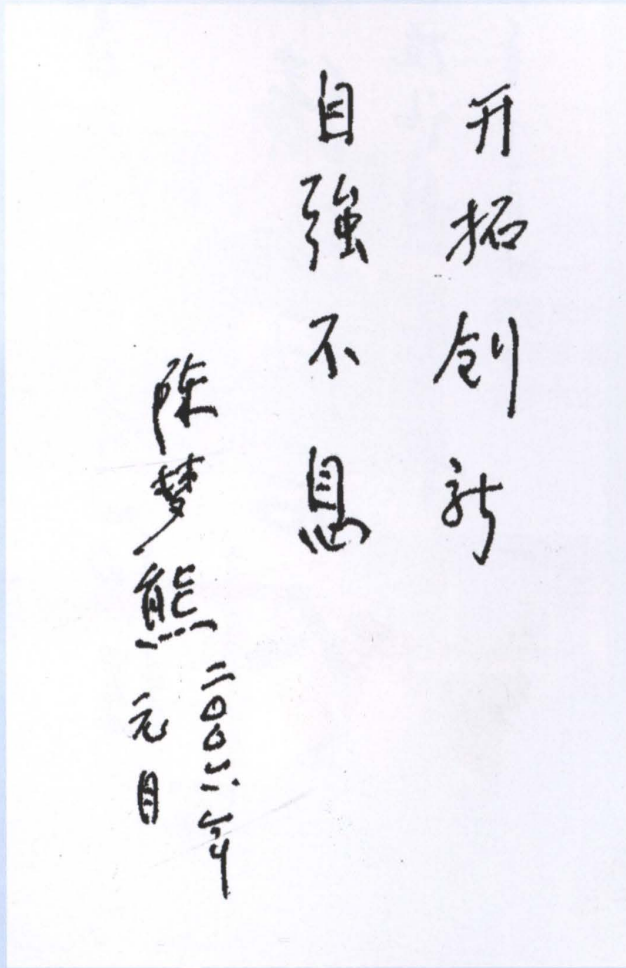 开拓创新
自強不息
陈梦熊
二〇〇六年
元月